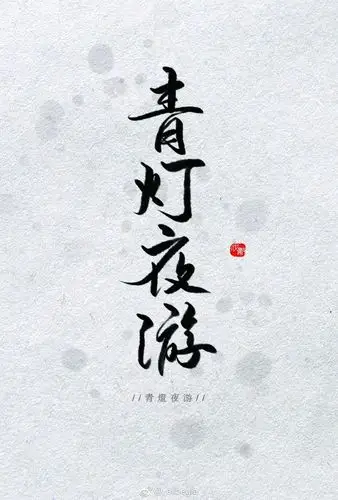 青灯夜游
//青燈夜游//